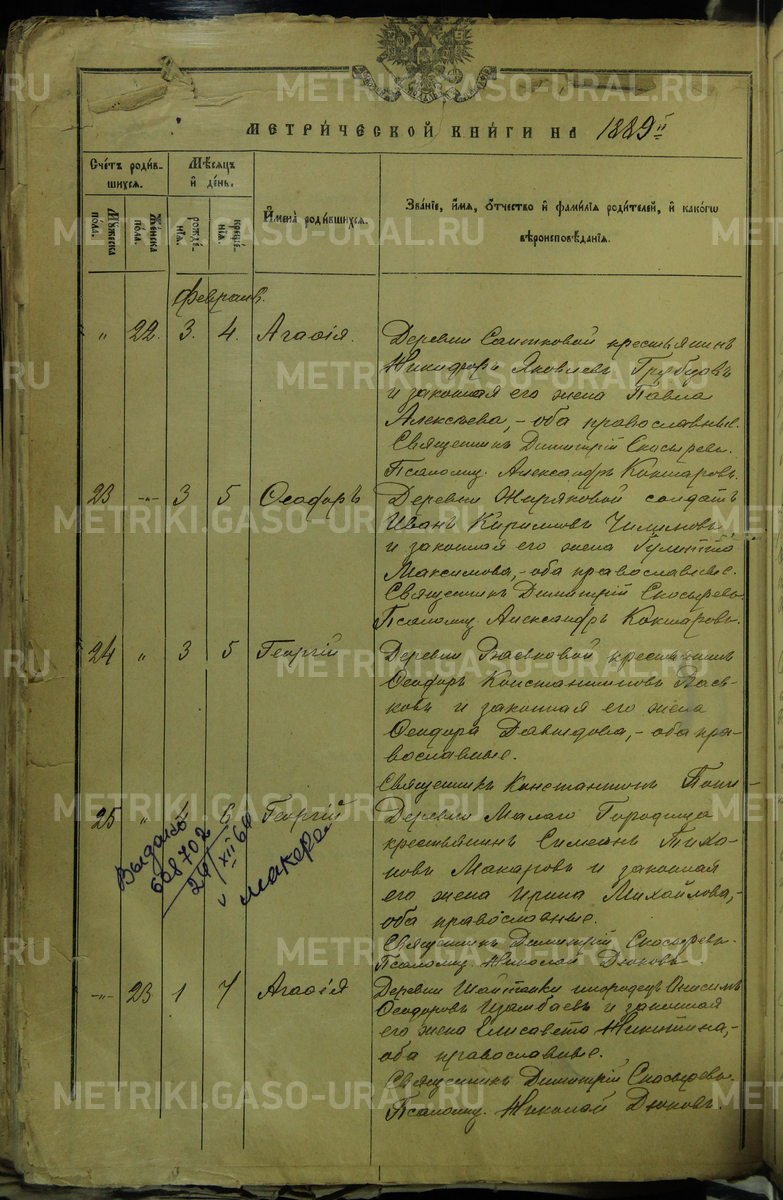 METRIKI.GASO-URAL.RU
МЕТРИ́ЧЕСКОЙ КНИ́ГИ НА 1889 г.
Счетъ роди́вшихся.
Мужеска пола.
Женска пола.
Мѣсяцъ и день.
рожденія.
крещенія.
Имена родившихся.
Званіе, имя, отчество и фамилія родителей, и какого вѣроисповѣданія.
Февраль.
" 22. 3. 4. Агаѳія.
Деревни крестьянинъ
Никифоръ Яковлевъ
и законная его жена Павла
Алексѣева, - оба православные.
Священникъ Димитрій Скосыревъ.
Псаломщ. Александръ Кокшаровъ.
23 -"- 3 5 Ѳеодоръ
Деревни Жиряковой солдатъ
Иванъ Кириловъ
и законная его жена
Максимова, - оба православные.
Священникъ Димитрій Скосыревъ.
Псаломщ. Александръ Кокшаровъ.
24 " 3 5 Георгій
Деревни крестьянинъ
Ѳеодоръ Константиновъ Вась-
ковъ и законная его жена
Ѳеодора Давыдова, - оба пра-
вославные.
Священникъ Константинъ
25 " 6 Георгій
Деревни Малаго Городища
крестьянинъ Симеонъ Тихо-
новъ Макаровъ и законная
его жена Ирина Михайлова, -
оба православные.
Священникъ Димитрій Скосыревъ.
Псаломщ. Николай Дюковъ.
Выдано
608702
24/XII 64
-"- 23 1 7 Агаѳія
Деревни Шайтанки инородецъ Анисимъ
Ѳеодоровъ Изамбаевъ и законная
его жена Елисавета Никитина, -
оба православные.
Священникъ Димитрій Скосыревъ.
Псаломщ. Николай Дюковъ.